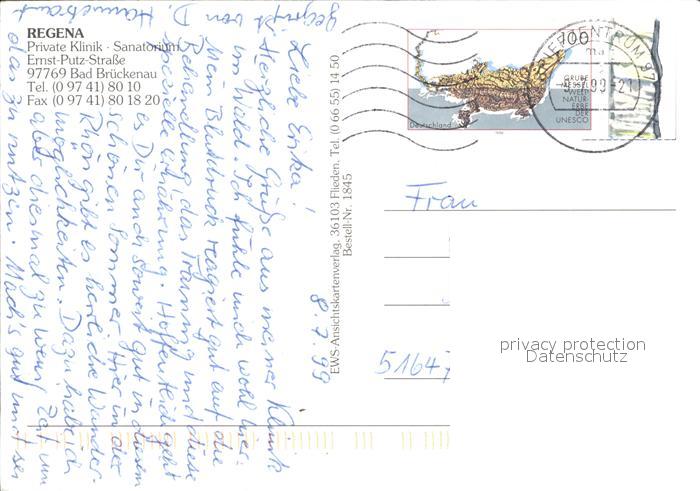 REGENA
Private Klinik · Sanatorium
Ernst-Putz-Straße
97769 Bad Brückenau
Tel. (0 97 41) 80 10
Fax (0 97 41) 80 18 20
EWS-Ansichtskartenverlag, 36103 Flieden. Tel. (0 66 55) 14 50
Bestell-Nr. 1845
8.7.99
Liebe Erika!
Herzliche Grüße aus meiner Klinik
im Wald. Ich fühle mich wohl hier.
Mein Blutdruck reagiert gut auf die
Behandlung, das Training und diese
spezielle Ernährung. Hoffentlich geht
es Dir auch soweit gut in diesem
schönen Sommer. Hier in der
Rhön gibt es herrliche Wander-
möglichkeiten. Dazu habe ich
aber diesmal zu wenig Zeit um
das zu nutzen. Mach's gut und sei
gegrüßt von D.
100
GRUBE
MESSEL
WELT
NATUR-
ERBE
DER
UNESCO
Deutschland
BRIEFZENTRUM 97
99-21
Frau
51647
privacy protection
Datenschutz